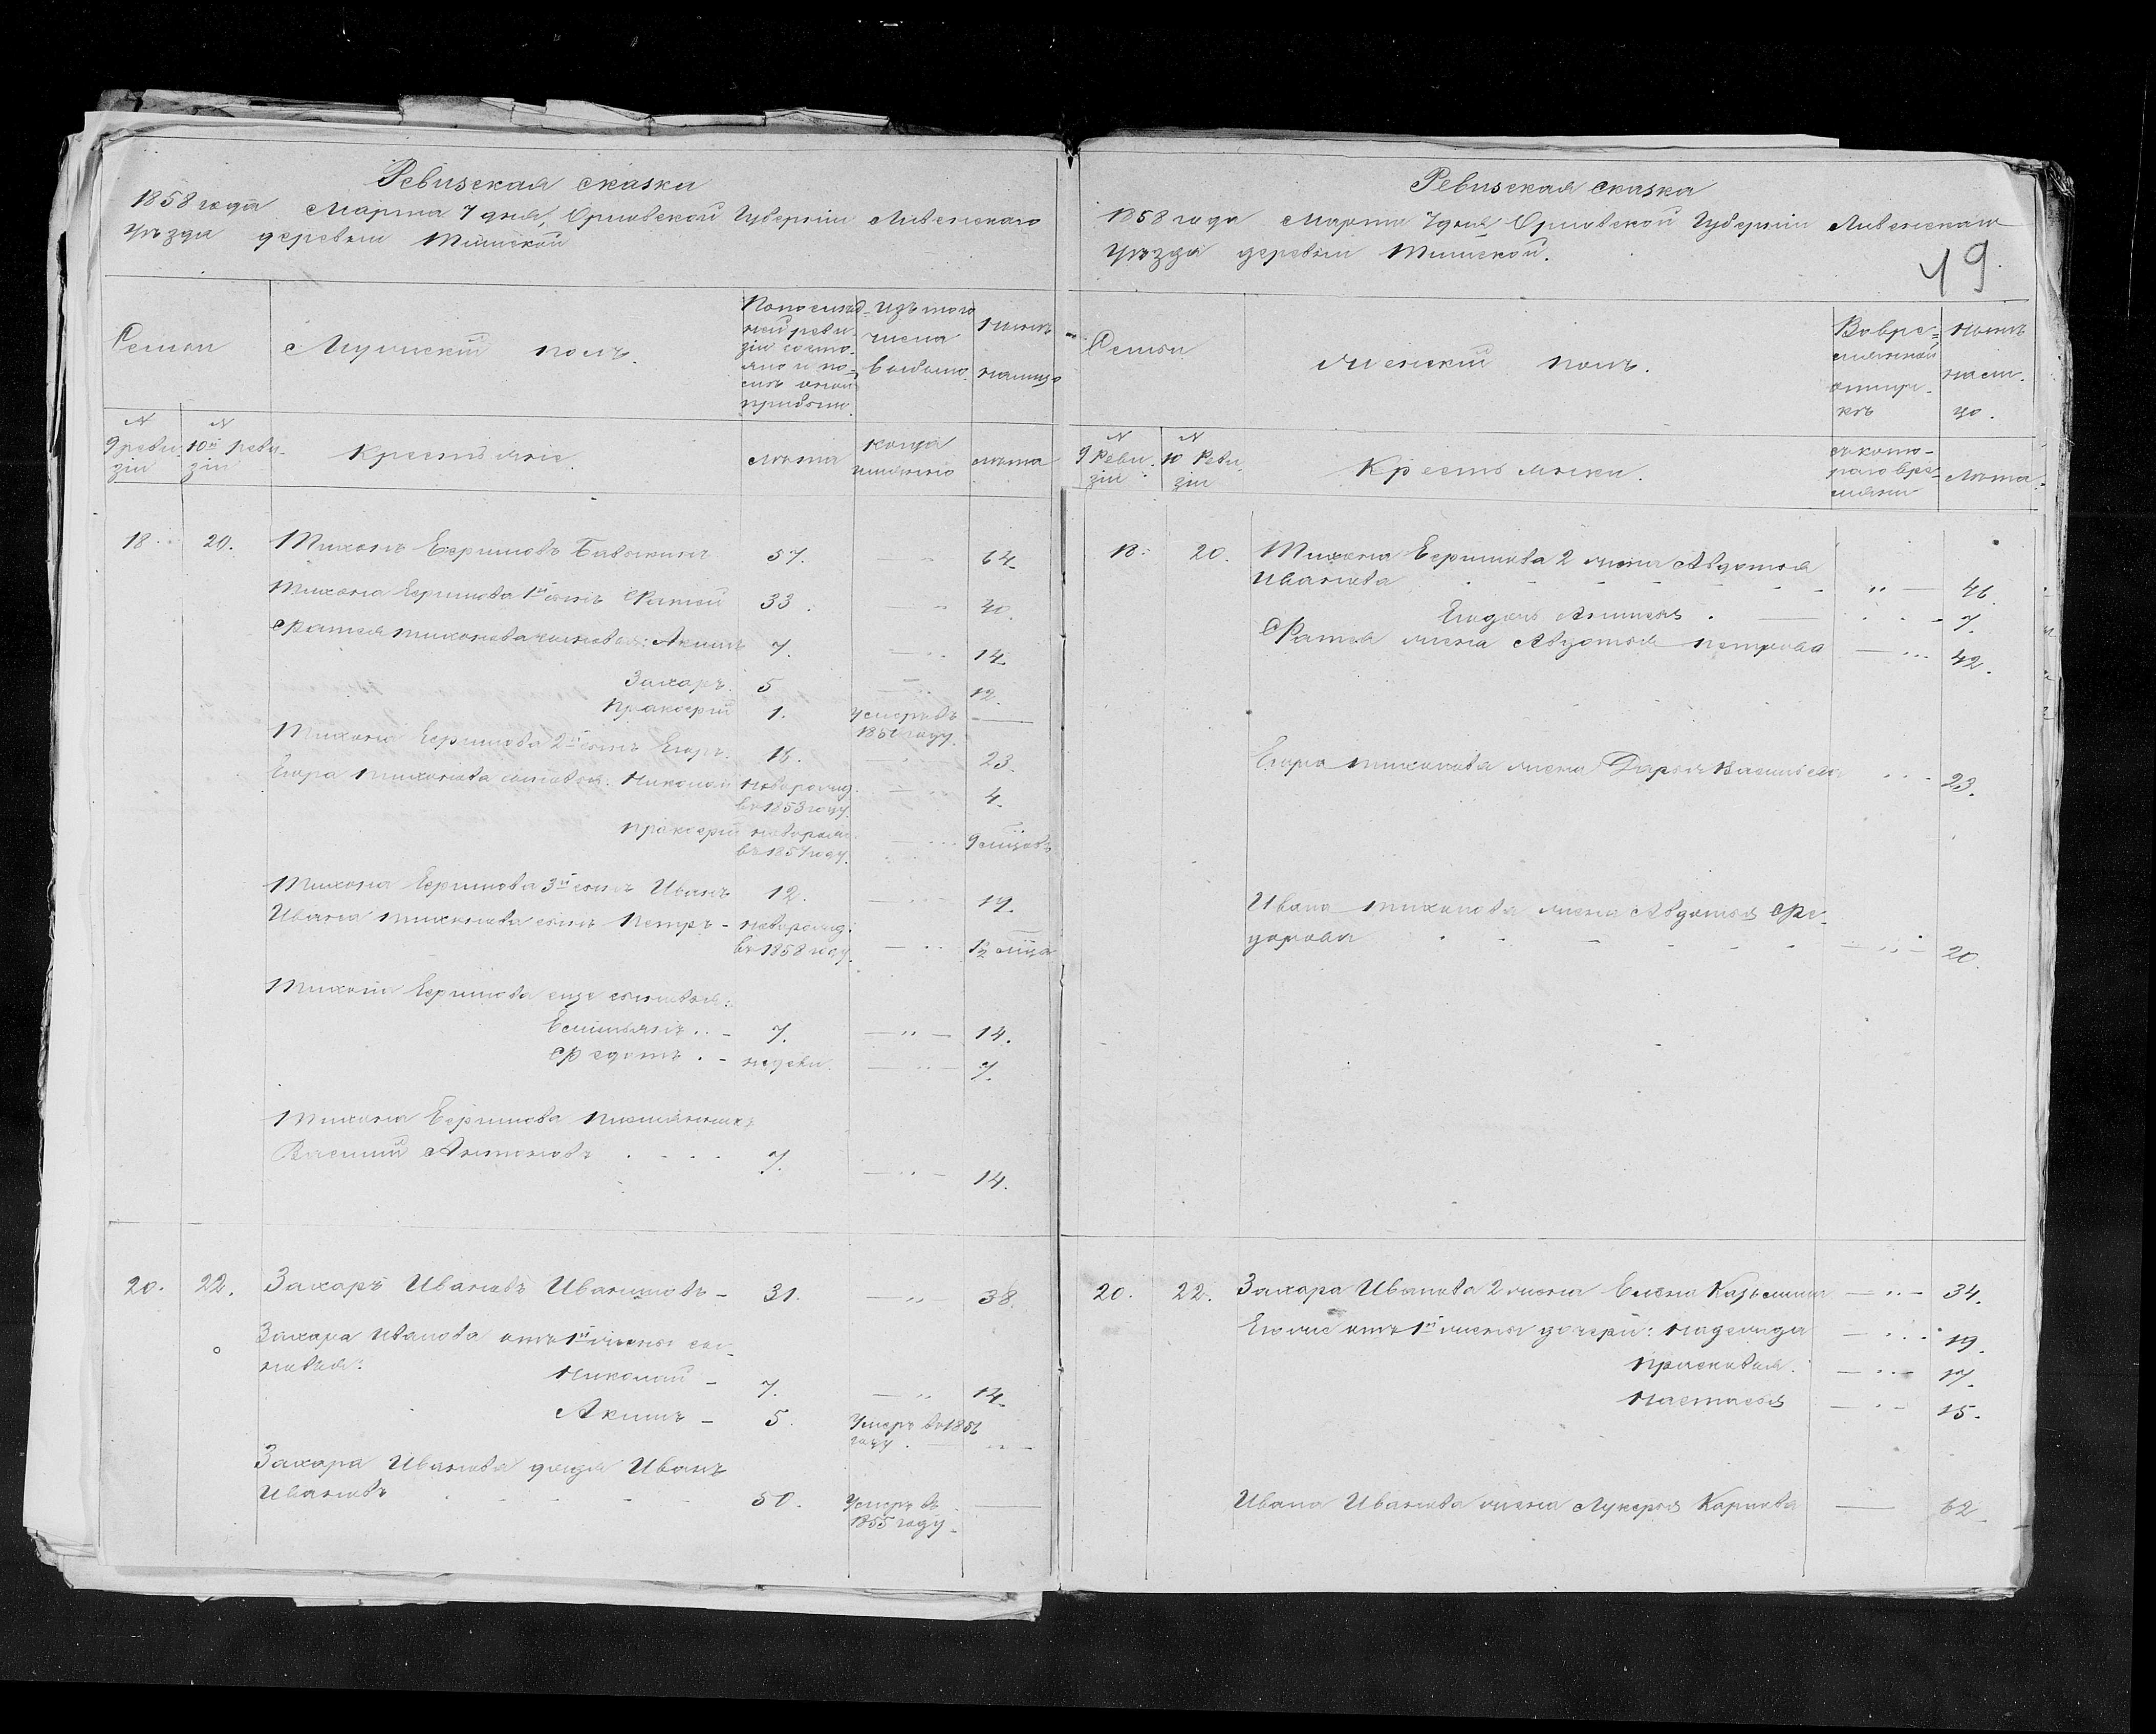 Ревизская сказка
1858 года Марта 7 дня, Орловской Губернии Ливенскаго
уѣзда деревни Тимской
Семьи
Мужескій полъ.
По послѣд-
ней реви-
зіи состо-
яло и по-
слѣ оной
прибыло.
Изъ того
числа
выбыло.
Нынѣ
на лицо
N
9 реви-
зіи
N
10й реви-
зіи
Крестьяне.
лѣта
когда
именно
лѣта
18. 20. Тихонъ Ефимовъ 57. 64.
Тихона Ефимова 1й сынъ Фатей 33. 40.
Фатея Тихонова сыновья: Акимъ 7. 14.
Захаръ. 5 12.
Прокофій 1. умеръ въ
1851 году.
Тихона Ефимова 2й сынъ Егоръ. 16. 23.
Егора Тихонова сыновья: Николай новорожд. 4.
въ 1853 году.
Прокофій новорожд. 9 мѣсцовъ
въ 1857 году.
Тихона Ефимова 3й сынъ Иванъ 12. 19.
Ивана Тихонова сынъ Петръ - новорожд.
въ 1858 году. 1/2 мѣца
Тихона Ефимова еще сыновья:
Емельянъ.. - 7. — " — 14.
Федотъ. - недели. 7.
Тихона Ефимова племянникъ
Василій Антоновъ 7. 14.
20. 22. Захаръ Ивановъ - 31. 38.
Захара Иванова отъ 1й жены сы-
новья:
Николай - 7. 14.
Акимъ - 5. Умеръ въ 1856
году.
Захара Иванова дядя Иванъ
Ивановъ 50. Умеръ въ
1855 году.
Ревизская сказка
1858 года Марта 7 дня, Орловской Губерніи Ливенскаго
уѣзда деревни Тимской.
49.
Семьи
Женскій полъ.
Во вре-
менной
отлуч-
кѣ
Нынѣ
на ли-
цо.
N
9 Реви-
зіи
N
10 Реви-
зіи
Крестьянки.
съ кото-
раго вре-
мени
лѣта.
18. 20. Тихона Ефимова 2 жена Авдотья
Иванова 46.
7.
Фатея жена Авдотья Петрова 42.
Егора Тихонова жена Дарья Васильева 23.
Ивана Тихонова жена Авдотья Фе-
дорова 20.
20. 22. Захара Иванова 2 жена Елена Казьмина 34.
Его же отъ 1й жены дочери: Надежда 19.
Прасковья. 17.
Настасья 15.
Ивана Иванова жена Лукерья Карпова 62.